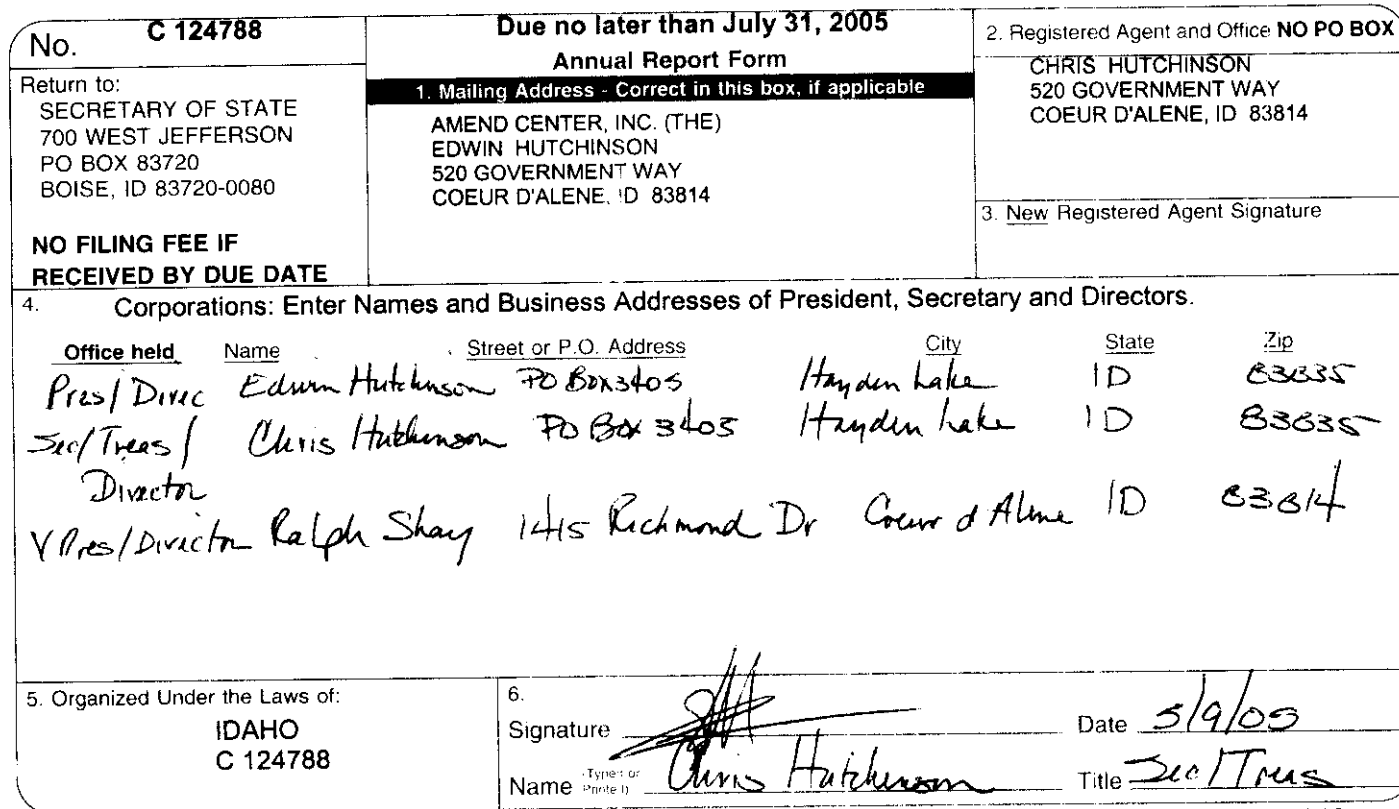 No. C 124788
Return to:
SECRETARY OF STATE
700 WEST JEFFERSON
PO BOX 83720
BOISE, ID 83720-0080
NO FILING FEE IF
RECEIVED BY DUE DATE
Due no later than July 31, 2005
Annual Report Form
1. Mailing Address - Correct in this box, if applicable
AMEND CENTER, INC. (THE)
EDWIN HUTCHINSON
520 GOVERNMENT WAY
COEUR D'ALENE, ID 83814
2. Registered Agent and Office NO PO BOX
CHRIS HUTCHINSON
520 GOVERNMENT WAY
COEUR D'ALENE, ID 83814
3. New Registered Agent Signature
4. Corporations: Enter Names and Business Addresses of President, Secretary and Directors.
Office held Name Street or P.O. Address City State Zip
Pres/Direc Edwin Hutchinson PO Box 3403 Hayden Lake ID 83835
Sec/Treas/ Chris Hutchinson PO Box 3403 Hayden Lake ID 83835
Director
V Pres/Director Ralph Shay 1415 Richmond Dr Coeur d Alene ID 83814
5. Organized Under the Laws of:
IDAHO
C 124788
6.
Signature
Date 5/9/05
Name (Typed or Printed) Chris Hutchinson
Title Sec/Treas